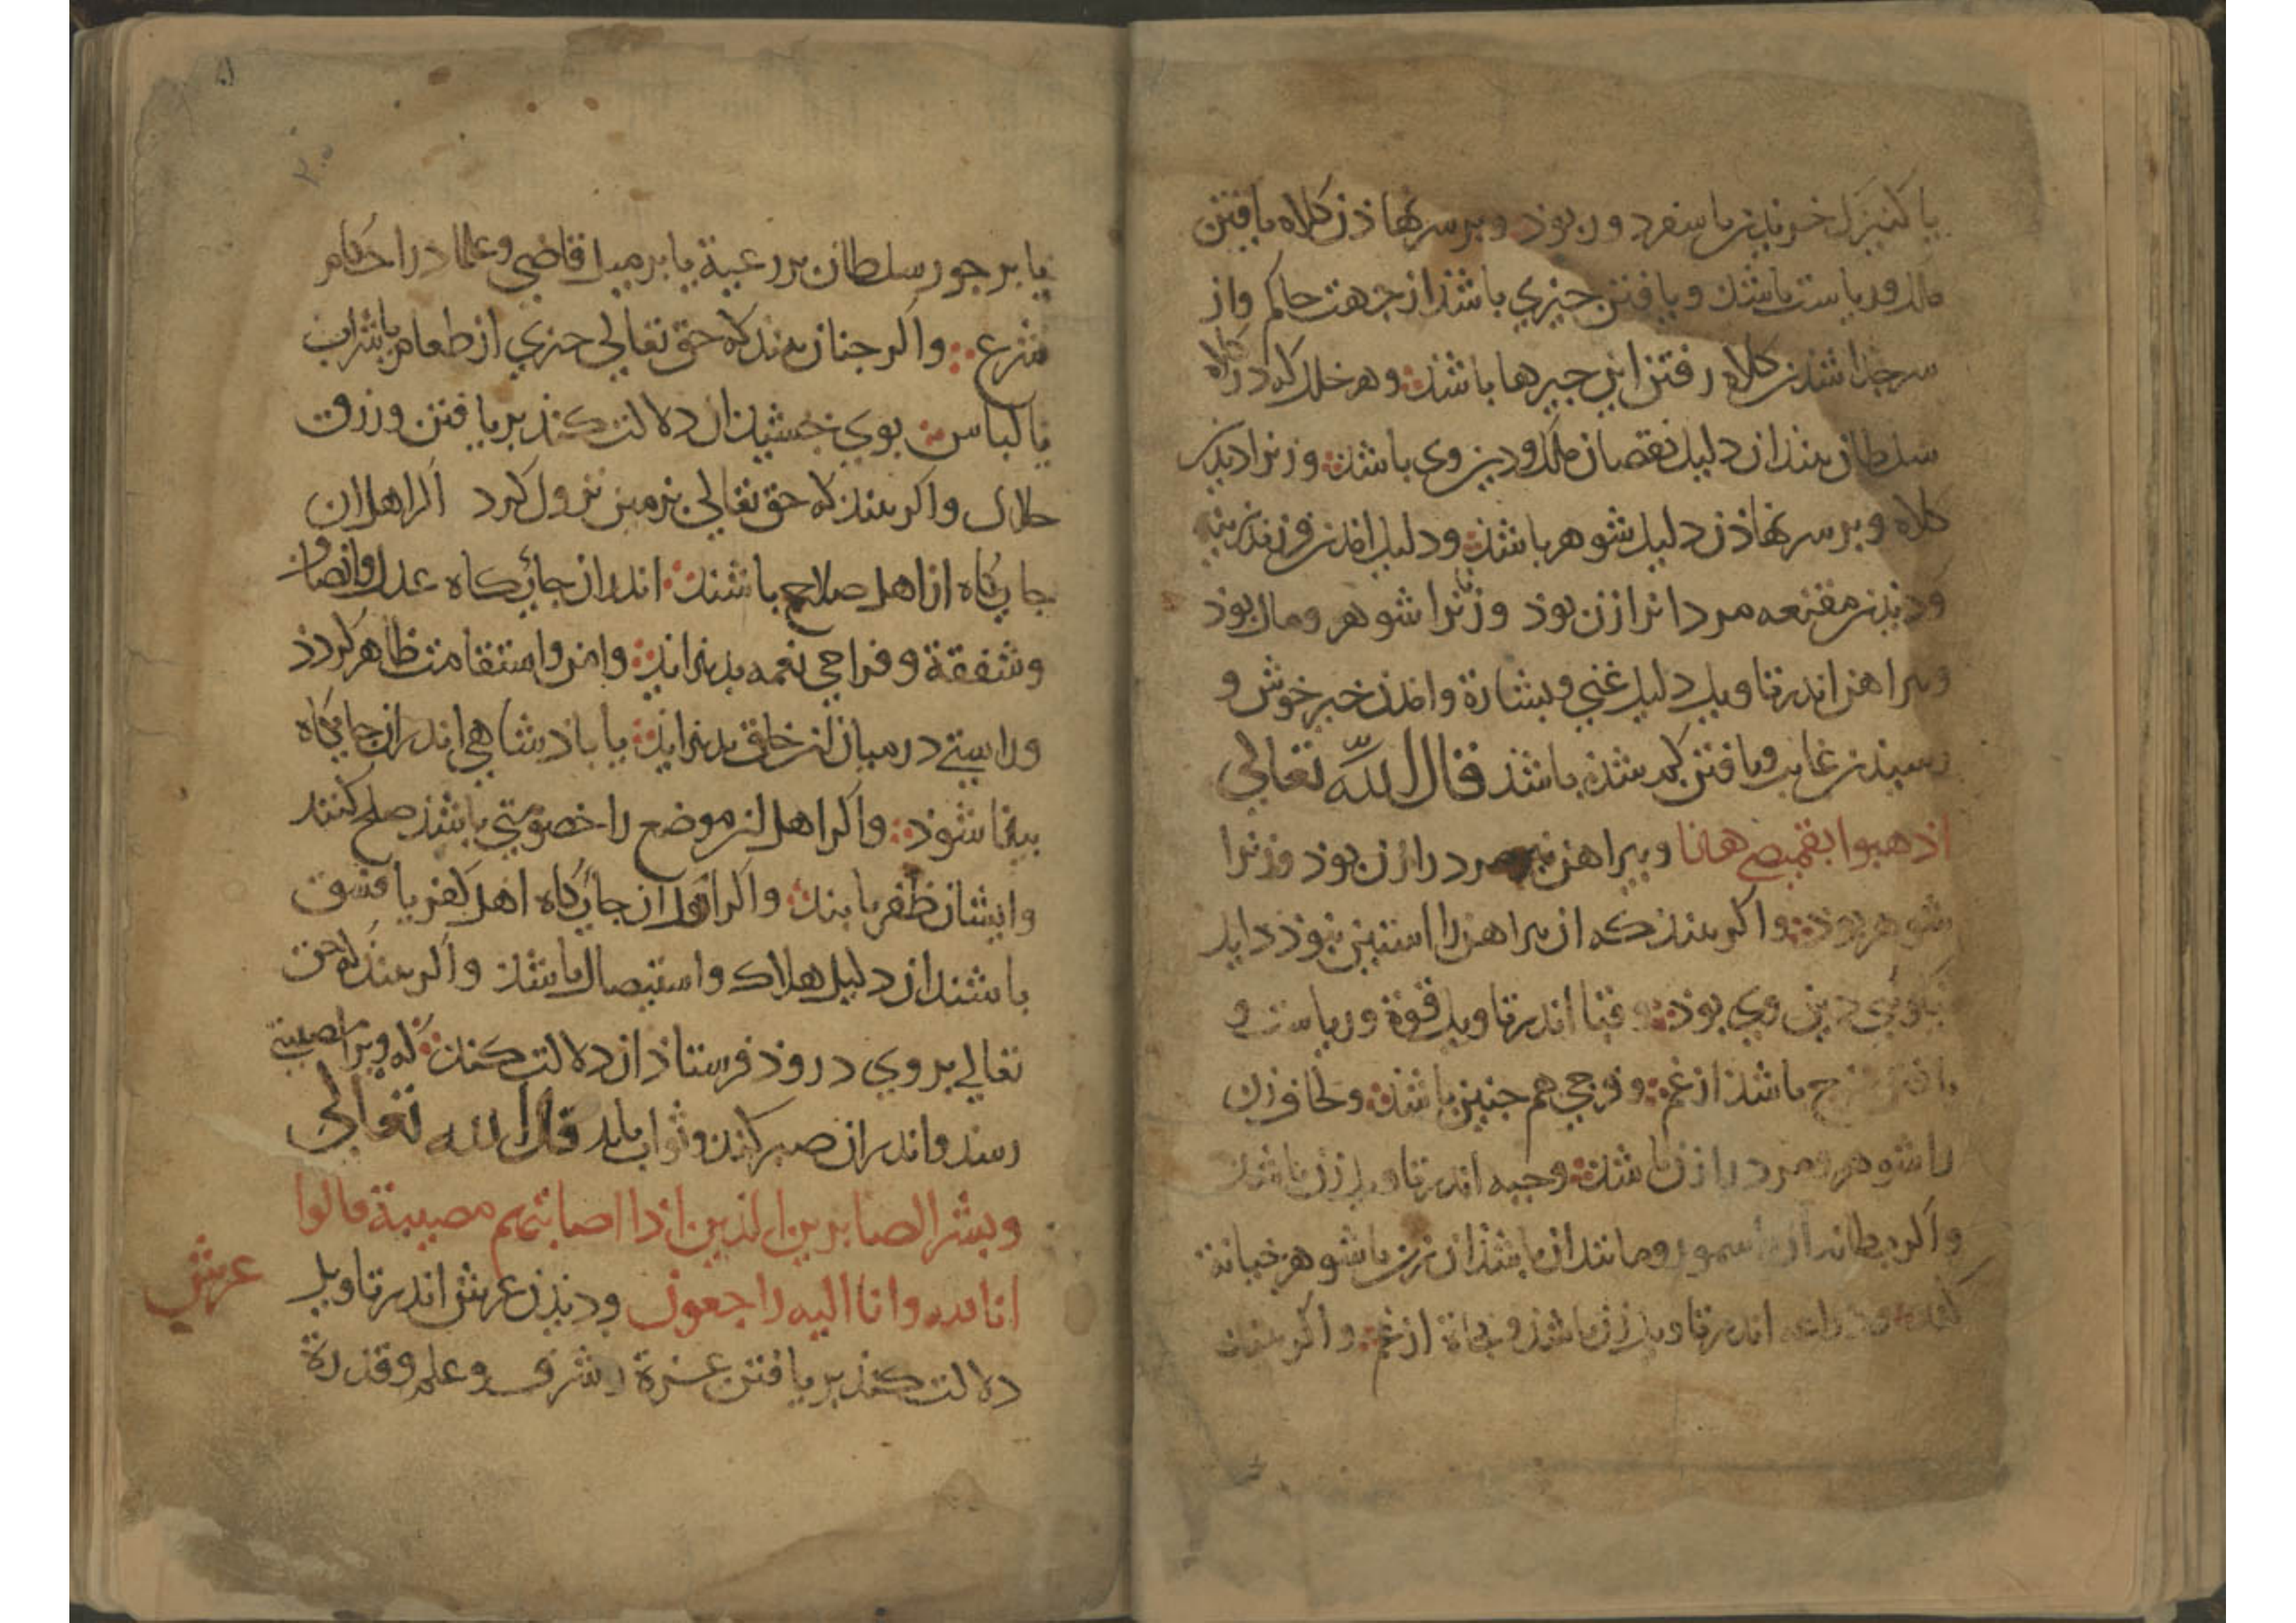 یا کنیزک خریدن یا سفر دور بوذ و بر سر نهاذن کلاه یافتن
ملک و ریاست باشذ و یافتن چیزی باشذ از جهت حاکم و از
سر جدا شدن کلاه رفتن این چیزها باشذ و هر خلل که در کلاه
سلطان بیند ان دلیل نقصان ملک و دین وی باشذ و زنرا دیذن
کلاه و بر سر نهاذن دلیل شوهر باشذ و دلیل امذن فرزند نرینه
و دیذن مقنعه مردانرا زن بوذ و زنانرا شوهر و مال بوذ
و پیراهن اندر تاویل دلیل غنی و بشارة و امذن خبر خوش و
رسیذن غایب و یافتن کم شذه باشذ قال الله تعالی
اذهبوا بقمیصی هذا و پیراهن مرد را زن بوذ و زنرا
شوهر بوذ و اکر بیند که ان پیراهن را استین نبوذ
نیکویی دین وی بوذ و قبا اندر تاویل قوة و ریاست و
باشذ از غم و فرجی هم چنین باشذ و لحاف زن
را شوهر و مرد را زن باشذ و جبه اندر تاویل زن باشذ
و اکر بطانه ان سمور و مانند ان باشذ ان زن با شوهر خیانة
کند اندر تاویل زن باشذ و نجاة از غم و اکر بیند
یا بر جور سلطان بر رعیة یا بر میل قاضی و علما در احکام
شرع و اکر چنان بیند که حق تعالی چیزی از طعام یا شراب
یا لباس بوی بخشیذ ان دلالت کنذ بر یافتن و رزق
حلال و اکر بیند که حق تعالی بزمین نزول کرد اکر اهل ان
جایکاه از اهل صلاح باشند اندر ان جایکاه عدل و انصاف
و شفقة و فراخی نعمه بدید اید و امن و استقامت ظاهر کردد
و راستی در میان ان خلق بدید اید یا باذشاهی اندر ان جایکاه
بیدا شوذ و اکر اهل ان موضع را خصومتی باشذ صلح کنند
و ایشان ظفر یابند و اکر اهل ان جایکاه اهل کفر یا فسق
باشند ان دلیل هلاک و استیصال باشذ و اکر بیند که حق
تعالی بر وی دروذ فرستاذ ان دلالت کند که ویرا مصیبتی
رسد و اندر ان صبر کند و ثواب یابد قال الله تعالی
وبشر الصابرین الذین اذا اصابتهم مصیبة قالوا
انا لله وانا الیه راجعون و دیذن عرش اندر تاویل
عرش
دلالت کنذ بر یافتن عزة و شرف و علم و قدرة